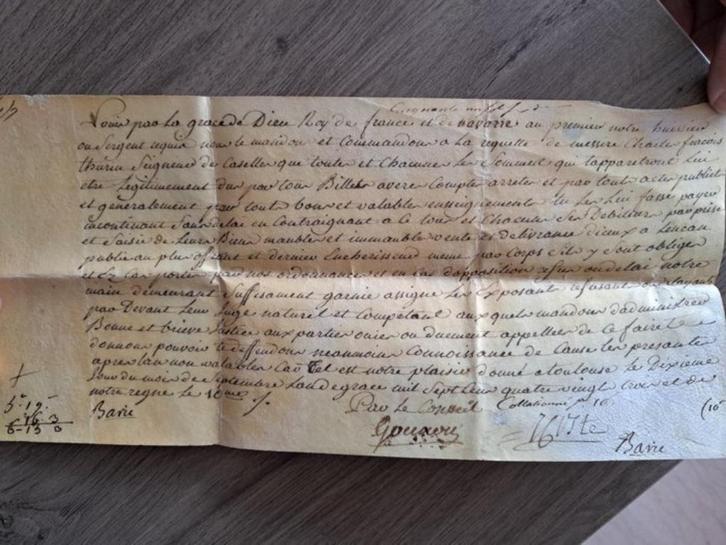 Louis par La grace de Dieu Roy de france et de navarre au premier notre huissier
ou Sergent requis nous te mandons et Commandons a La requette de messire Charles francois
thurin Seigneur de Caselles que toutes et Chacunes Les Sommes qui t'apparetront Lui
etre Legitimement dues par tous Billets averes Comptes arretes et par tous actes publics
et generalement par tous bons et valables enseignements tu Les Lui fasse payer
incontinant Sans delai en Contraignant a Ce tous et Chacuns Ses Debiteurs par prise
et Saisie de Leurs Biens meubles et immeubles vente et delivrance d'iceux a L'encan
public au plus offrant et dernier Encherisseur meme par Corps s'ils y Sont obliges
et Ez Cas portés par nos ordonnances et en Cas d'opposition refus ou delai notre
main demeurant Suffisament garnie assigne Les Exposants refusants ou
par Devant Leur Juge naturel et Competant auxquels mandons d'administrer
Bonne et brieve Justice aux parties ouies ou duement appellees de Ce faire te
donnons pouvoir te deffendons neanmoins Connoissance de Cause Les presentes
apres L'an non valables Car tel est notre plaisir donné a toulouse Le Dixieme
Jour du mois de Septembre L'an de grace mil Sept Cens quatre vingt trois et de
notre regne Le 10me
Par Le Conseil
Collationné
Barré
Barré
5 - 19 -